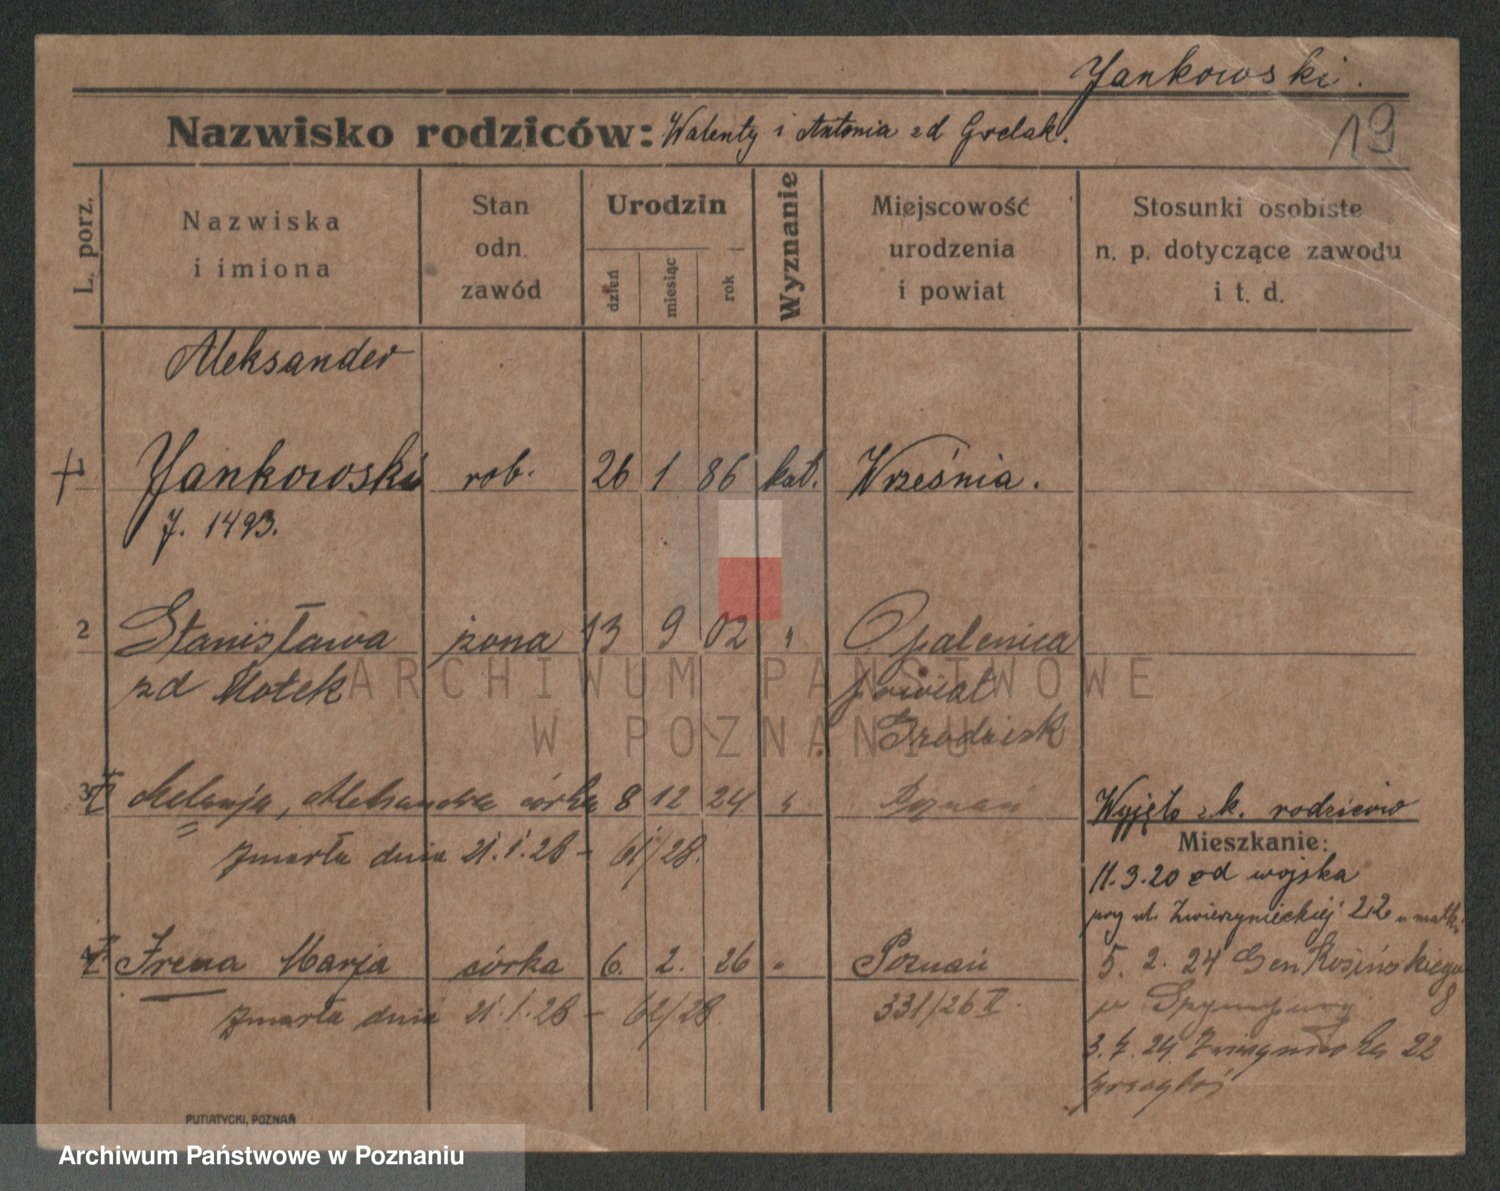 Jankowski.
19
Nazwisko rodziców: Walenty i Antonia zd Grelak.
L. porz.
Nazwiska
i imiona
Stan
odn.
zawód
Urodzin
dzień
miesiąc
rok
Wyznanie
Miejscowość
urodzenia
i powiat
Stosunki osobiste
n. p. dotyczące zawodu
i t. d.
Aleksander
1 Jankowski rob. 26 1 86 kat. Września.
J. 1493.
2 Stanisława żona 13 9 02 " Opalenica
zd Motek powiat
Grodzisk
3 Melanja, Aleksandra córka 8 12 24 " Poznań
zmarła dnia 21.1.28 - 61/28.
4 Irena Marja córka 6. 2. 26 " Poznań
zmarła dnia 21.1.28 - 62/28 331/26 II.
Wyjęto z k. rodziców
Mieszkanie:
11.3.20 od wojska
przy ul. Zwierzynieckiej 22 u matk.
5. 2. 24 Gen Kosińskiego
8
3.7.24 22
PUTIATYCKI, POZNAŃ
ARCHIWUM PAŃSTWOWE
W POZNANIU
Archiwum Państwowe w Poznaniu